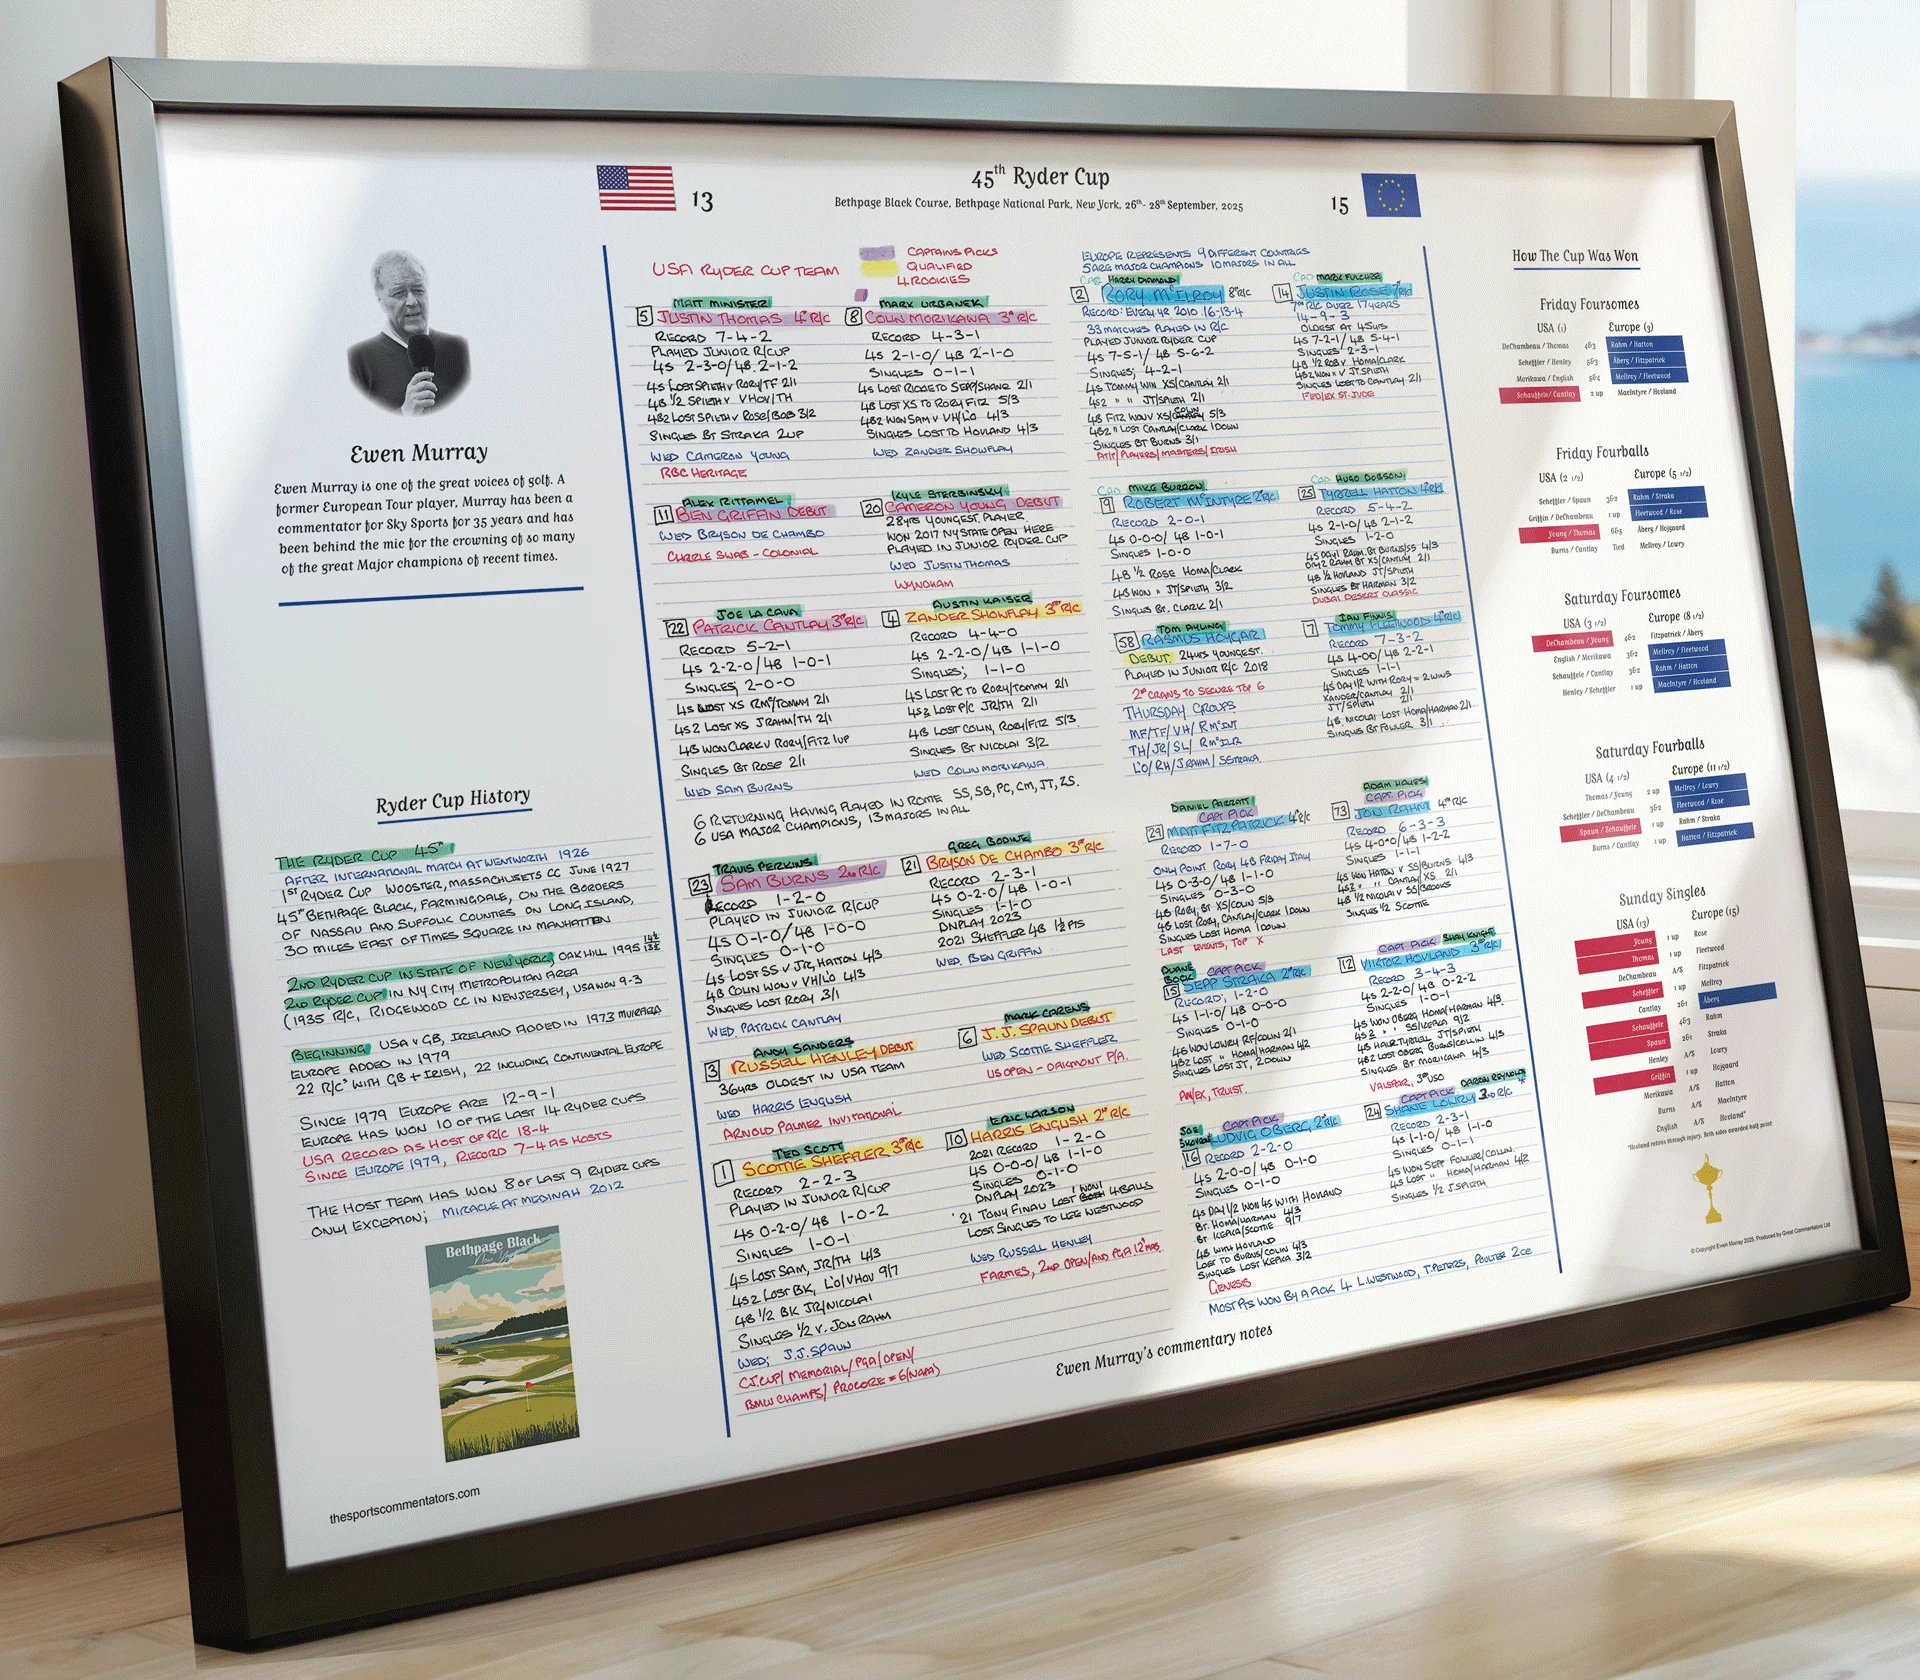 45th Ryder Cup
13
15
Bethpage Black Course, Bethpage National Park, New York, 26th - 28th September, 2025
Ewen Murray
Ewen Murray is one of the great voices of golf. A
former European Tour player, Murray has been a
commentator for Sky Sports for 35 years and has
been behind the mic for the crowning of so many
of the great Major champions of recent times.
Ryder Cup History
THE RYDER CUP 45th
AFTER INTERNATIONAL MATCH AT WENTWORTH 1926
1ST RYDER CUP WOOSTER, MASSACHUSETS CC JUNE 1927
45th BETHPAGE BLACK, FARMINGDALE, ON THE BORDERS
OF NASSAU AND SUFFOLK COUNTIES ON LONG ISLAND,
30 MILES EAST OF TIMES SQUARE IN MANHATTEN
2ND RYDER CUP IN STATE OF NEW YORK, OAK HILL 1995 14½ 13½
2ND RYDER CUP IN NY CITY METROPOLITAN AREA
(1935 R/C, RIDGEWOOD CC IN NEW JERSEY, USA WON 9-3
BEGINNING USA V GB, IRELAND ADDED IN 1973 MUIRFIELD
EUROPE ADDED IN 1979
22 R/Cs WITH GB + IRISH, 22 INCLUDING CONTINENTAL EUROPE
SINCE 1979 EUROPE ARE 12-9-1
EUROPE HAS WON 10 OF THE LAST 14 RYDER CUPS
USA RECORD AS HOST OF R/C 18-4
SINCE EUROPE 1979, RECORD 7-4 AS HOSTS
THE HOST TEAM HAS WON 8 OF LAST 9 RYDER CUPS
ONLY EXCEPTION; MIRACLE AT MEDINAH 2012
Bethpage Black
New York
thesportscommentators.com
USA RYDER CUP TEAM
CAPTAINS PICKS
QUALIFIED
4 ROOKIES
MATT MINISTER
5 JUSTIN THOMAS 4th R/C
RECORD 7-4-2
PLAYED JUNIOR R/CUP
4S 2-3-0/4B. 2-1-2
4S LOST SPIETH V RORY/TF 2/1
4B ½ SPIETH V VHOV/TH
4B2 LOST SPIETH V ROSE/BOB 3/2
SINGLES BT STRAKA 2UP
WED CAMERON YOUNG
RBC HERITAGE
MARK URBANEK
8 COLIN MORIKAWA 3rd R/C
RECORD 4-3-1
4S 2-1-0/4B 2-1-0
SINGLES 0-1-1
4S LOST RICKIE TO SEPP/SHANE 2/1
4B LOST XS TO RORY FITZ 5/3
4B2 WON SAM V VH/LO 4/3
SINGLES LOST TO HOVLAND 4/3
WED ZANDER SHOWFLAY
ALEX RITTAMEL
11 BEN GRIFFIN DEBUT
WED BRYSON DE CHAMBO
CHARLE SWAB - COLONIAL
KYLE STERBINSKY
20 CAMERON YOUNG DEBUT
28YRS YOUNGEST PLAYER
WON 2017 NY STATE OPEN HERE
PLAYED IN JUNIOR RYDER CUP
WED JUSTIN THOMAS
WYNDHAM
JOE LA CAVA
22 PATRICK CANTLAY 3rd R/C
RECORD 5-2-1
4S 2-2-0/4B 1-0-1
SINGLES; 2-0-0
4S LOST XS RMc/TOMMY 2/1
4S2 LOST XS JRAHM/TH 2/1
4B WON CLARK V RORY/FITZ 1UP
SINGLES BT ROSE 2/1
WED SAM BURNS
AUSTIN KAISER
4 ZANDER SHOWFLAY 3rd R/C
RECORD 4-4-0
4S 2-2-0/4B 1-1-0
SINGLES; 1-1-0
4S LOST PC TO RORY/TOMMY 2/1
4S2 LOST P/C JR/TH 2/1
4B LOST COLIN, RORY/FITZ 5/3
SINGLES BT NICOLAI 3/2
WED COLIN MORIKAWA
6 RETURNING HAVING PLAYED IN ROME SS, SB, PC, CM, JT, ZS.
6 USA MAJOR CHAMPIONS, 13 MAJORS IN ALL
TRAVIS PERKINS
23 SAM BURNS 2ND R/C
RECORD 1-2-0
PLAYED IN JUNIOR R/CUP
4S 0-1-0/4B 1-0-0
SINGLES 0-1-0
4S LOST SS V JR, HATTON 4/3
4B COLIN WON V VH/LO 4/3
SINGLES LOST RORY 3/1
WED. PATRICK CANTLAY
GREG BODINE
21 BRYSON DE CHAMBO 3rd R/C
RECORD 2-3-1
4S 0-2-0/4B 1-0-1
SINGLES 1-1-0
DNPLAY 2023
2021 SHEFFLER 4B 1½ PTS
WED. BEN GRIFFIN
ANDY SANDERS
3 RUSSELL HENLEY DEBUT
36YRS OLDEST IN USA TEAM
WED HARRIS ENGLISH
ARNOLD PALMER INVITATIONAL
MARK CARENS
6 J.J. SPAUN DEBUT
WED SCOTTIE SHEFFLER
US OPEN - OAKMONT P.A.
TED SCOTT
1 SCOTTIE SHEFFLER 3rd R/C
RECORD 2-2-3
PLAYED IN JUNIOR R/CUP
4S 0-2-0/4B 1-0-2
SINGLES 1-0-1
4S LOST SAM, JR/TH 4/3
4S2 LOST BK, LO/VHOV 9/7
4B ½ BK JR/NICOLAI
SINGLES ½ V. JON RAHM
WED; J.J. SPAUN
CJ.CUP/ MEMORIAL/ PGA/ OPEN/
BMW CHAMPS/ PROCORE = 6 (NAPA)
ERIC LARSON
10 HARRIS ENGLISH 2nd R/C
2021 RECORD 1-2-0
4S 0-0-0/4B 1-1-0
SINGLES 0-1-0
DNPLAY 2023 1 WON 1
'21 TONY FINAU LOST 4BALLS
LOST SINGLES TO LEE WESTWOOD
WED RUSSELL HENLEY
FARMIES, 2ND OPEN/AND PGA 12 MAS.
EUROPE REPRESENTS 9 DIFFERENT COUNTRIES
5 ARE MAJOR CHAMPIONS 10 MAJORS IN ALL
CAD HARRY DIAMOND
2 RORY McILROY 8th R/C
RECORD: EVERY YR 2010. 16-13-4
33 MATCHES PLAYED IN R/C
PLAYED JUNIOR RYDER CUP
4S 7-5-1/ 4B 5-6-2
SINGLES; 4-2-1
4S TOMMY WIN XS/CANTLAY 2/1
4S2 " " JT/SPIETH 2/1
4B FITZ WON V XS/COLIN 5/3
4B2 " LOST CANTLAY/CLARK 1DOWN
SINGLES BT BURNS 3/1
AT+T/PLAYERS/MASTERS/IRISH
CAD MARK FULCHER
14 JUSTIN ROSE 7th R/C
7th R/C OVER 17 YEARS
14-9-3
OLDEST AT 45YRS
4S 7-2-1/ 4B 5-4-1
SINGLES 2-3-1
4B ½ ROB V HOMA/CLARK
4B2 WON " V JT.SPIETH
SINGLES LOST TO CANTLAY 2/1
FED/EX ST.JUDE
CAD MIKE BURROW
9 ROBERT McINTYRE 2nd R/C
RECORD 2-0-1
4S 0-0-0/ 4B 1-0-1
SINGLES 1-0-0
4B ½ ROSE HOMA/CLARK
4B WON " JT/SPIETH 3/2
SINGLES BT. CLARK 2/1
CAD HUGO DOBSON
25 TYRRELL HATTON 4th R/C
RECORD 5-4-2
4S 2-1-0/ 4B 2-1-2
SINGLES 1-2-0
4S DAY1 RAHM. BT BURNS/SS 4/3
DAY2 RAHM BT XS/CANTLAY 2/1
4B ½ HOVLAND JT/SPIETH
SINGLES BT HARMAN 3/2
DUBAI DESERT CLASSIC
TOM AYLING
58 RASMUS HOYGAR
DEBUT. 24YRS YOUNGEST.
PLAYED IN JUNIOR R/C 2018
2nd CRANS TO SECURE TOP 6
THURSDAY GROUPS
MF/TF/VH/ RMcINT
TH/JR/SL/ RMcILR
LO/RH/J.RAHM/ SSTRAKA
IAN FINNIS
7 TOMMY FLEETWOOD 4th R/C
RECORD 7-3-2
4S 4-0-0/ 4B 2-2-1
SINGLES 1-1-1
4S DAY 1/2 WITH RORY = 2 WINS
XANDER/CANTLAY 2/1
JT/SPIETH 2/1
4B. NICOLAI LOST HOMA/HARMAN 2/1
SINGLES BT FOWLER 3/1
DANIEL PARRATT
CAPT PICK
29 MATT FITZPATRICK 4th R/C
RECORD 1-7-0
ONLY POINT RORY 4B FRIDAY ITALY
4S 0-3-0/ 4B 1-1-0
SINGLES 0-3-0
4B RORY, BT XS/COLIN 5/3
4B LOST RORY, CANTLAY/CLARK 1DOWN
SINGLES LOST HOMA 1DOWN
LAST EVENTS, TOP X
ADAM HAYES
CAPT. PICK
73 JON RAHM 4th R/C
RECORD 6-3-3
4S 4-0-0/ 4B 1-2-2
SINGLES 1-1-1
4S WON HATTON V SS/BURNS 4/3
4S2 " " CANTLAY/XS 2/1
4B ½ NICOLAI V SS/BROOKS
SINGLES ½ SCOTTIE
DUANE BOCK
CAPT PICK
15 SEPP STRAKA 2nd R/C
RECORD; 1-2-0
4S 1-1-0/ 4B 0-0-0
SINGLES 0-1-0
4S WON LOWRY RF/COLIN 2/1
4S2 LOST " HOMA/HARMAN 4/2
SINGLES LOST JT, 2DOWN
AM/EX, TRUST.
CAPT PICK SHAY KNIGHT
12 VIKTOR HOVLAND 3rd R/C
RECORD 3-4-3
4S 2-2-0/ 4B 0-2-2
SINGLES 1-0-1
4S WON OBERG HOMA/HARMAN 4/3
4S2 " " SS/KEPKA 9/7
4B HALF TYRRELL JT/SPIETH
4B2 LOST OBERG BURNS/COLLIN 4/3
SINGLES BT MORIKAWA 4/3
VALSPAR, 3rd USO
JOE SKOVRON
CAPT PICK
16 LUDVIG OBERG 2nd R/C
RECORD 2-2-0
4S 2-0-0/ 4B 0-1-0
SINGLES 0-1-0
4S DAY 1/2 WON 4S WITH HOVLAND
BT. HOMA/HARMAN 4/3
BT KEPKA/SCOTTIE 9/7
4B WITH HOVLAND
LOST TO BURNS/COLIN 4/3
SINGLES LOST KEPKA 3/2
GENESIS
MOST PTS WON BY A PICK 4 L.WESTWOOD, T.PIETERS, POULTER 2ce
CAPT PICK DARON REYNOLDS
24 SHANE LOWRY 3RD R/C
RECORD 2-3-1
4S 1-1-0/ 4B 1-1-0
SINGLES 0-1-1
4S WON SEPP FOWLER/COLLIN.
4S LOST " HOMA/HARMAN 4/2
SINGLES ½ J.SPIETH
Ewen Murray's commentary notes
How The Cup Was Won
Friday Foursomes
USA (1) Europe (3)
DeChambeau / Thomas 4&3 Rahm / Hatton
Scheffler / Henley 5&3 Åberg / Fitzpatrick
Morikawa / English 5&4 McIlroy / Fleetwood
Schauffele / Cantlay 2 up MacIntyre / Hovland
Friday Fourballs
USA (2 1/2) Europe (5 1/2)
Scheffler / Spaun 3&2 Rahm / Straka
Griffin / DeChambeau 1 up Fleetwood / Rose
Young / Thomas 6&5 Åberg / Hojgaard
Burns / Cantlay Tied McIlroy / Lowry
Saturday Foursomes
USA (3 1/2) Europe (8 1/2)
DeChambeau / Young 4&2 Fitzpatrick / Åberg
English / Morikawa 3&2 McIlroy / Fleetwood
Schauffele / Cantlay 3&2 Rahm / Hatton
Henley / Scheffler 1 up MacIntyre / Hovland
Saturday Fourballs
USA (4 1/2) Europe (11 1/2)
Thomas / Young 2 up McIlroy / Lowry
Scheffler / DeChambeau 3&2 Fleetwood / Rose
Spaun / Schauffele 1 up Rahm / Straka
Burns / Cantlay 1 up Hatton / Fitzpatrick
Sunday Singles
USA (13) Europe (15)
Young 1 up Rose
Thomas 1 up Fleetwood
DeChambeau A/S Fitzpatrick
Scheffler 1 up McIlroy
Cantlay 2&1 Åberg
Schauffele 4&3 Rahm
Spaun 2&1 Straka
Henley A/S Lowry
Griffin 1 up Hojgaard
Morikawa A/S Hatton
Burns A/S MacIntyre
English A/S Hovland*
*Hovland retires through injury. Both sides awarded half point
© Copyright Ewen Murray 2025. Produced by Great Commentators Ltd